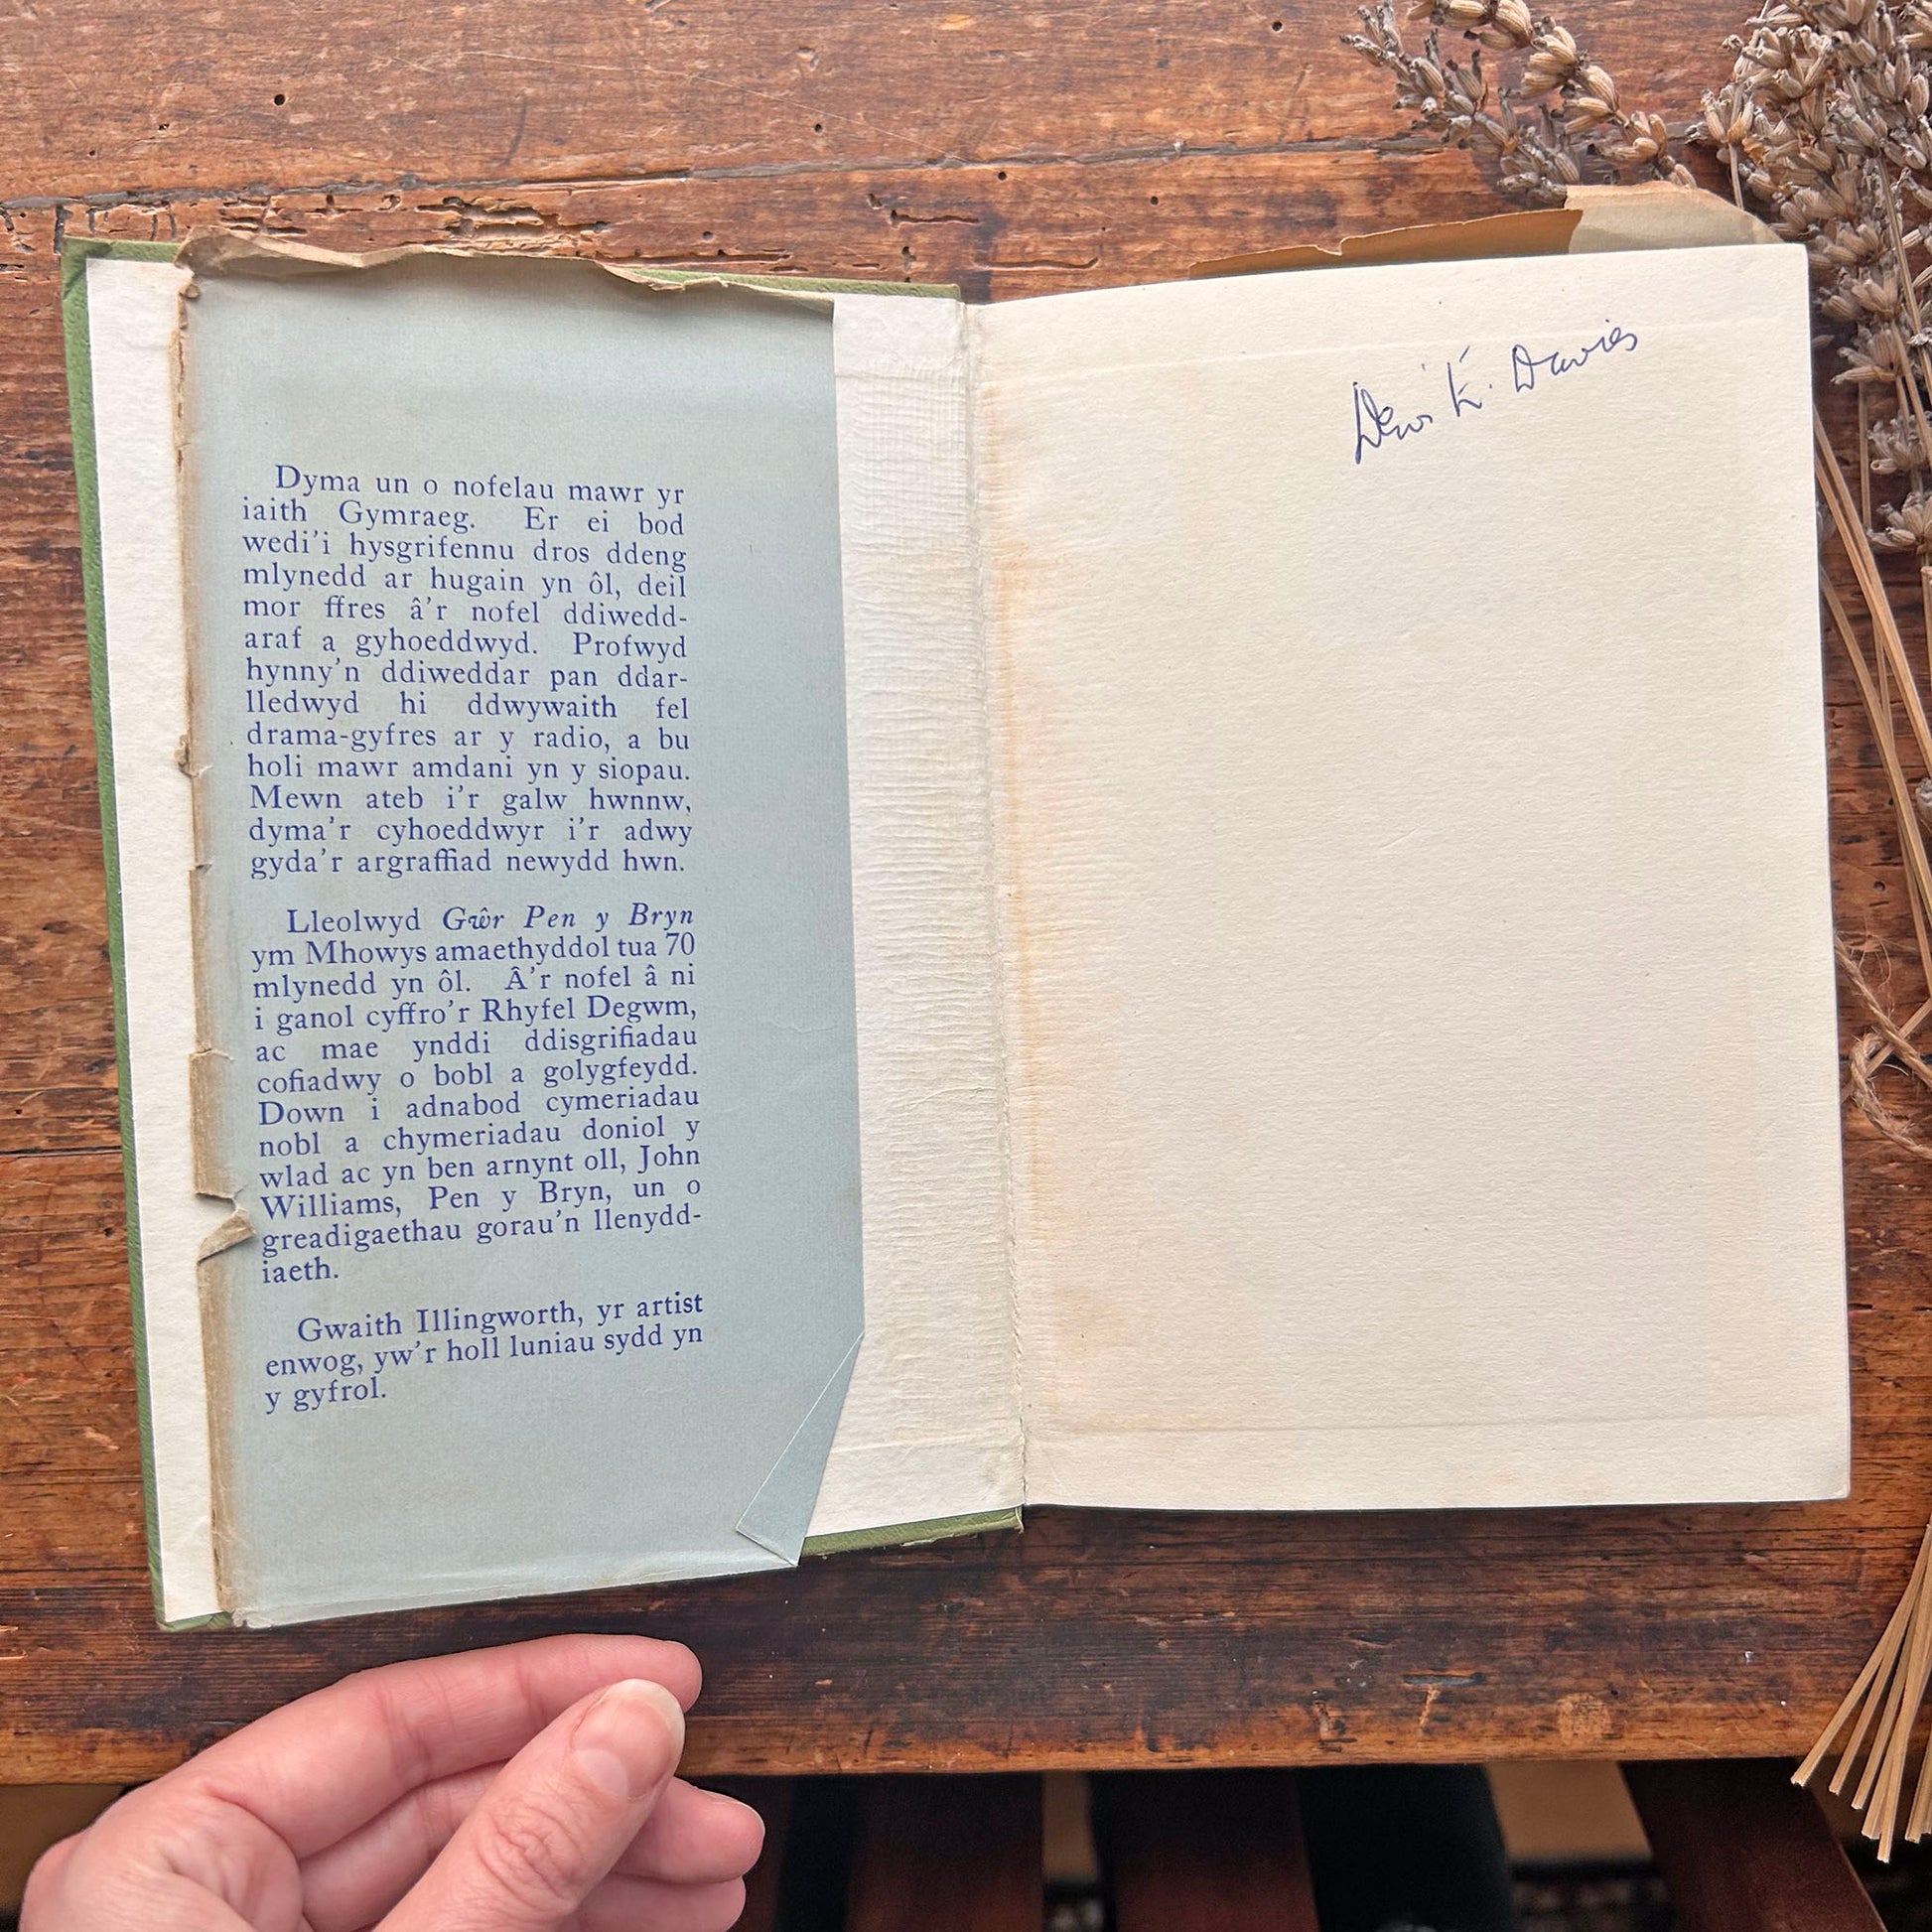 Dyma un o nofelau mawr yr
iaith Gymraeg. Er ei bod
wedi'i hysgrifennu dros ddeng
mlynedd ar hugain yn ôl, deil
mor ffres â'r nofel ddiwedd-
araf a gyhoeddwyd. Profwyd
hynny'n ddiweddar pan ddar-
lledwyd hi ddwywaith fel
drama-gyfres ar y radio, a bu
holi mawr amdani yn y siopau.
Mewn ateb i'r galw hwnnw,
dyma'r cyhoeddwyr i'r adwy
gyda'r argraffiad newydd hwn.
Lleolwyd Gŵr Pen y Bryn
ym Mhowys amaethyddol tua 70
mlynedd yn ôl. Â'r nofel â ni
i ganol cyffro'r Rhyfel Degwm,
ac mae ynddi ddisgrifiadau
cofiadwy o bobl a golygfeydd.
Down i adnabod cymeriadau
nobl a chymeriadau doniol y
wlad ac yn ben arnynt oll, John
Williams, Pen y Bryn, un o
greadigaethau gorau'n llenydd-
iaeth.
Gwaith Illingworth, yr artist
enwog, yw'r holl luniau sydd yn
y gyfrol.
Dewi E. Davies